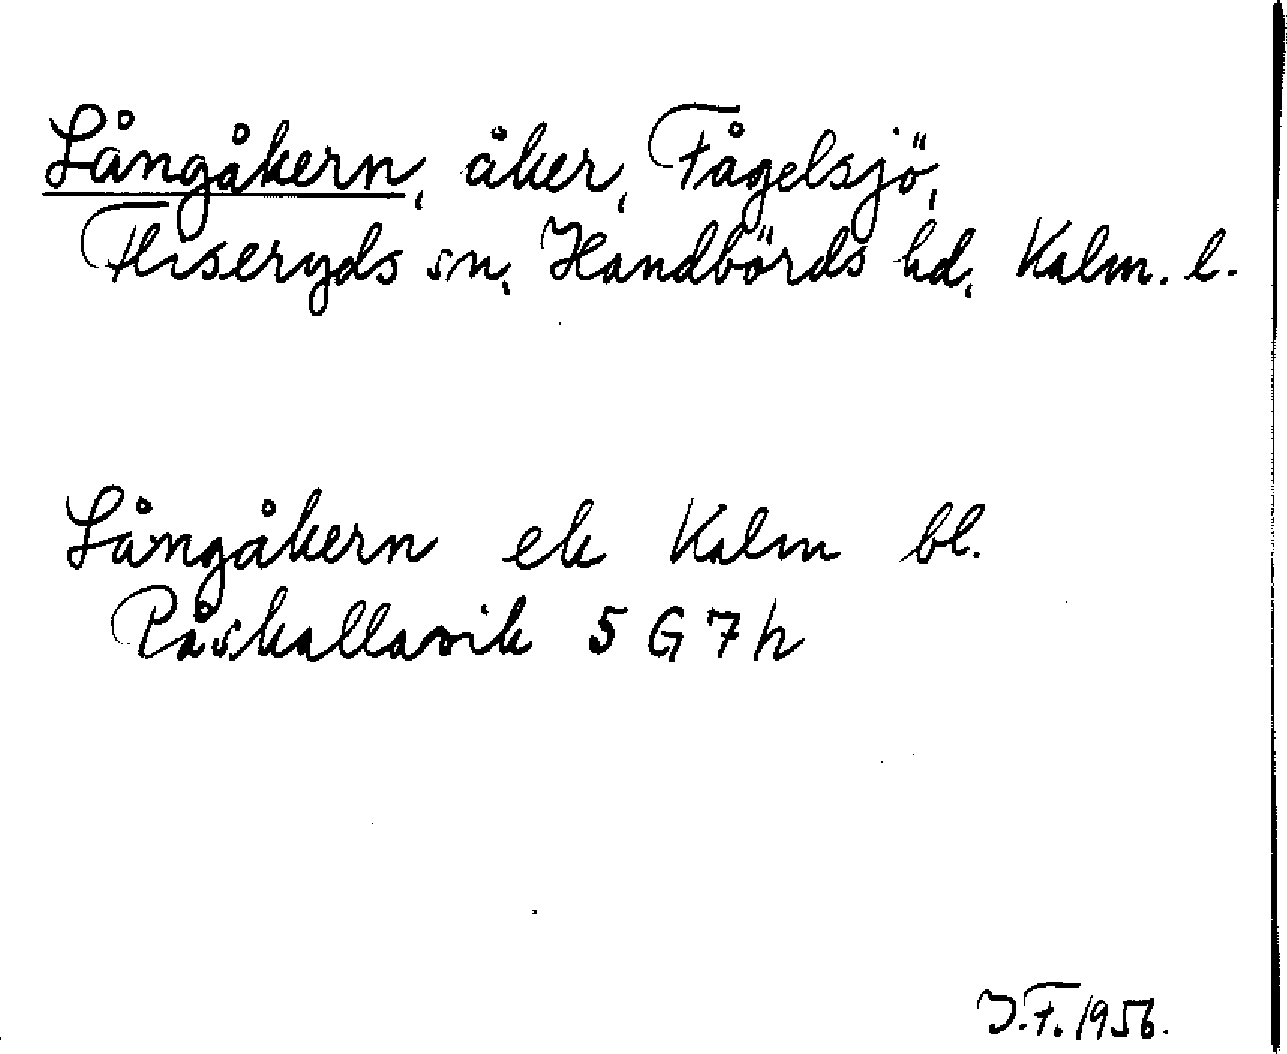 Långåkern, åker, Fågelsjö,
Fliseryds sn, Handbörds hd, Kalm. l.
Långåkern ek Kalm bl.
Påskallavik 5 G 7 h
J.F. 1956.